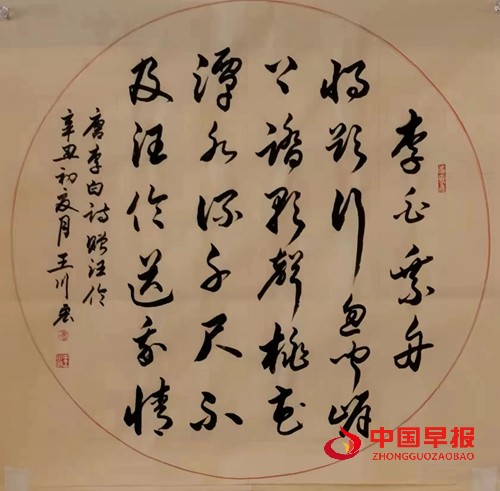 李白乘舟
将欲行忽聞岸
上踏歌聲桃花
潭水深千尺不
及汪倫送我情
唐李白詩贈汪倫
辛丑初夏月王川
中国早报
ZHONGGUOZAOBAO